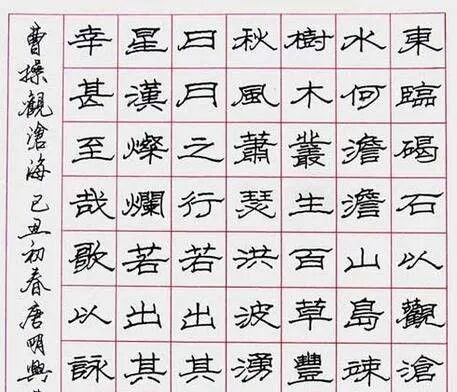 東臨碣石以觀滄
水何澹澹山島竦
樹木叢生百草豐
秋風蕭瑟洪波湧
日月之行若出其
星漢燦爛若出其
幸甚至哉歌以詠
曹操觀滄海己丑初春唐明興